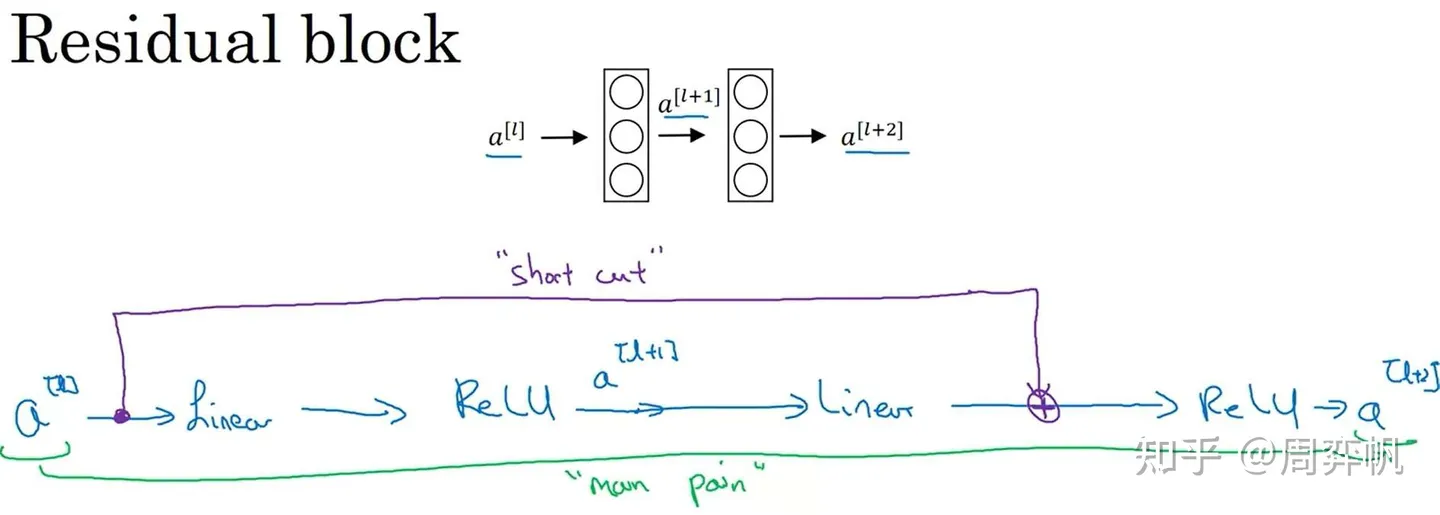 Residual block
a[l+1]
a[l] a[l+2]
"short cut"
a[l] Linear ReLU a[l+1] Linear ReLU a[l+2]
"main pain"
知乎 @周弈帆